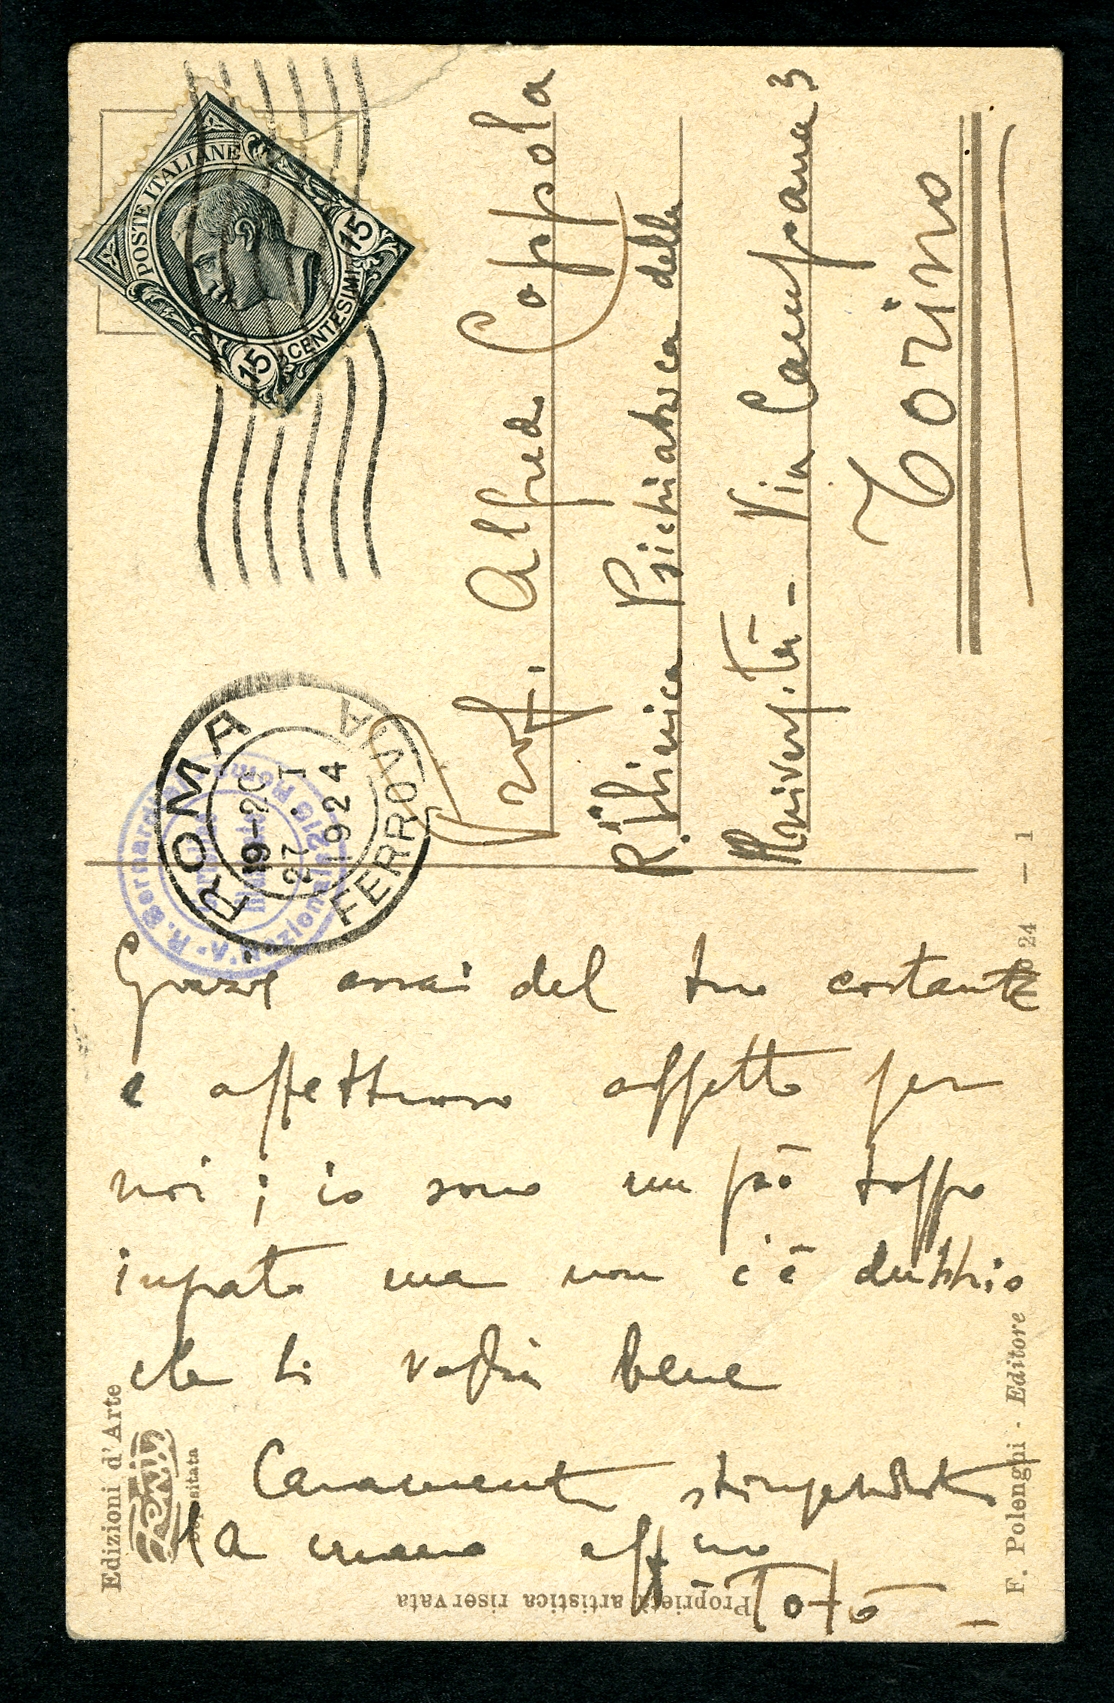 POSTE ITALIANE
15 CENTESIMI 15
ROMA
19-20
27. I
1924
FERROVIA
Prof. Alfredo Coppola
R. Clinica Psichiatrica della
Università - Via Campana 3
Torino
Grazie assai del tuo costante
e affettuoso affetto per
noi; io sono un pò troppo
ingrato ma non c'è dubbio
che ti voglio bene
Caramente stringendoti
la mano aff.mo
Totò
Edizioni d'Arte
Depositata
Proprietà artistica riservata
F. Polenghi - Editore
24 - 1